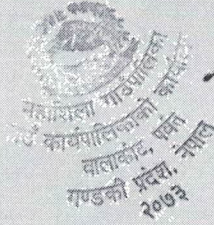 महाशिला गाउँपालिका
गाउँ कार्यपालिकाको कार्यालय
वालाकोट, पर्वत
गण्डकी प्रदेश, नेपाल
२०७३